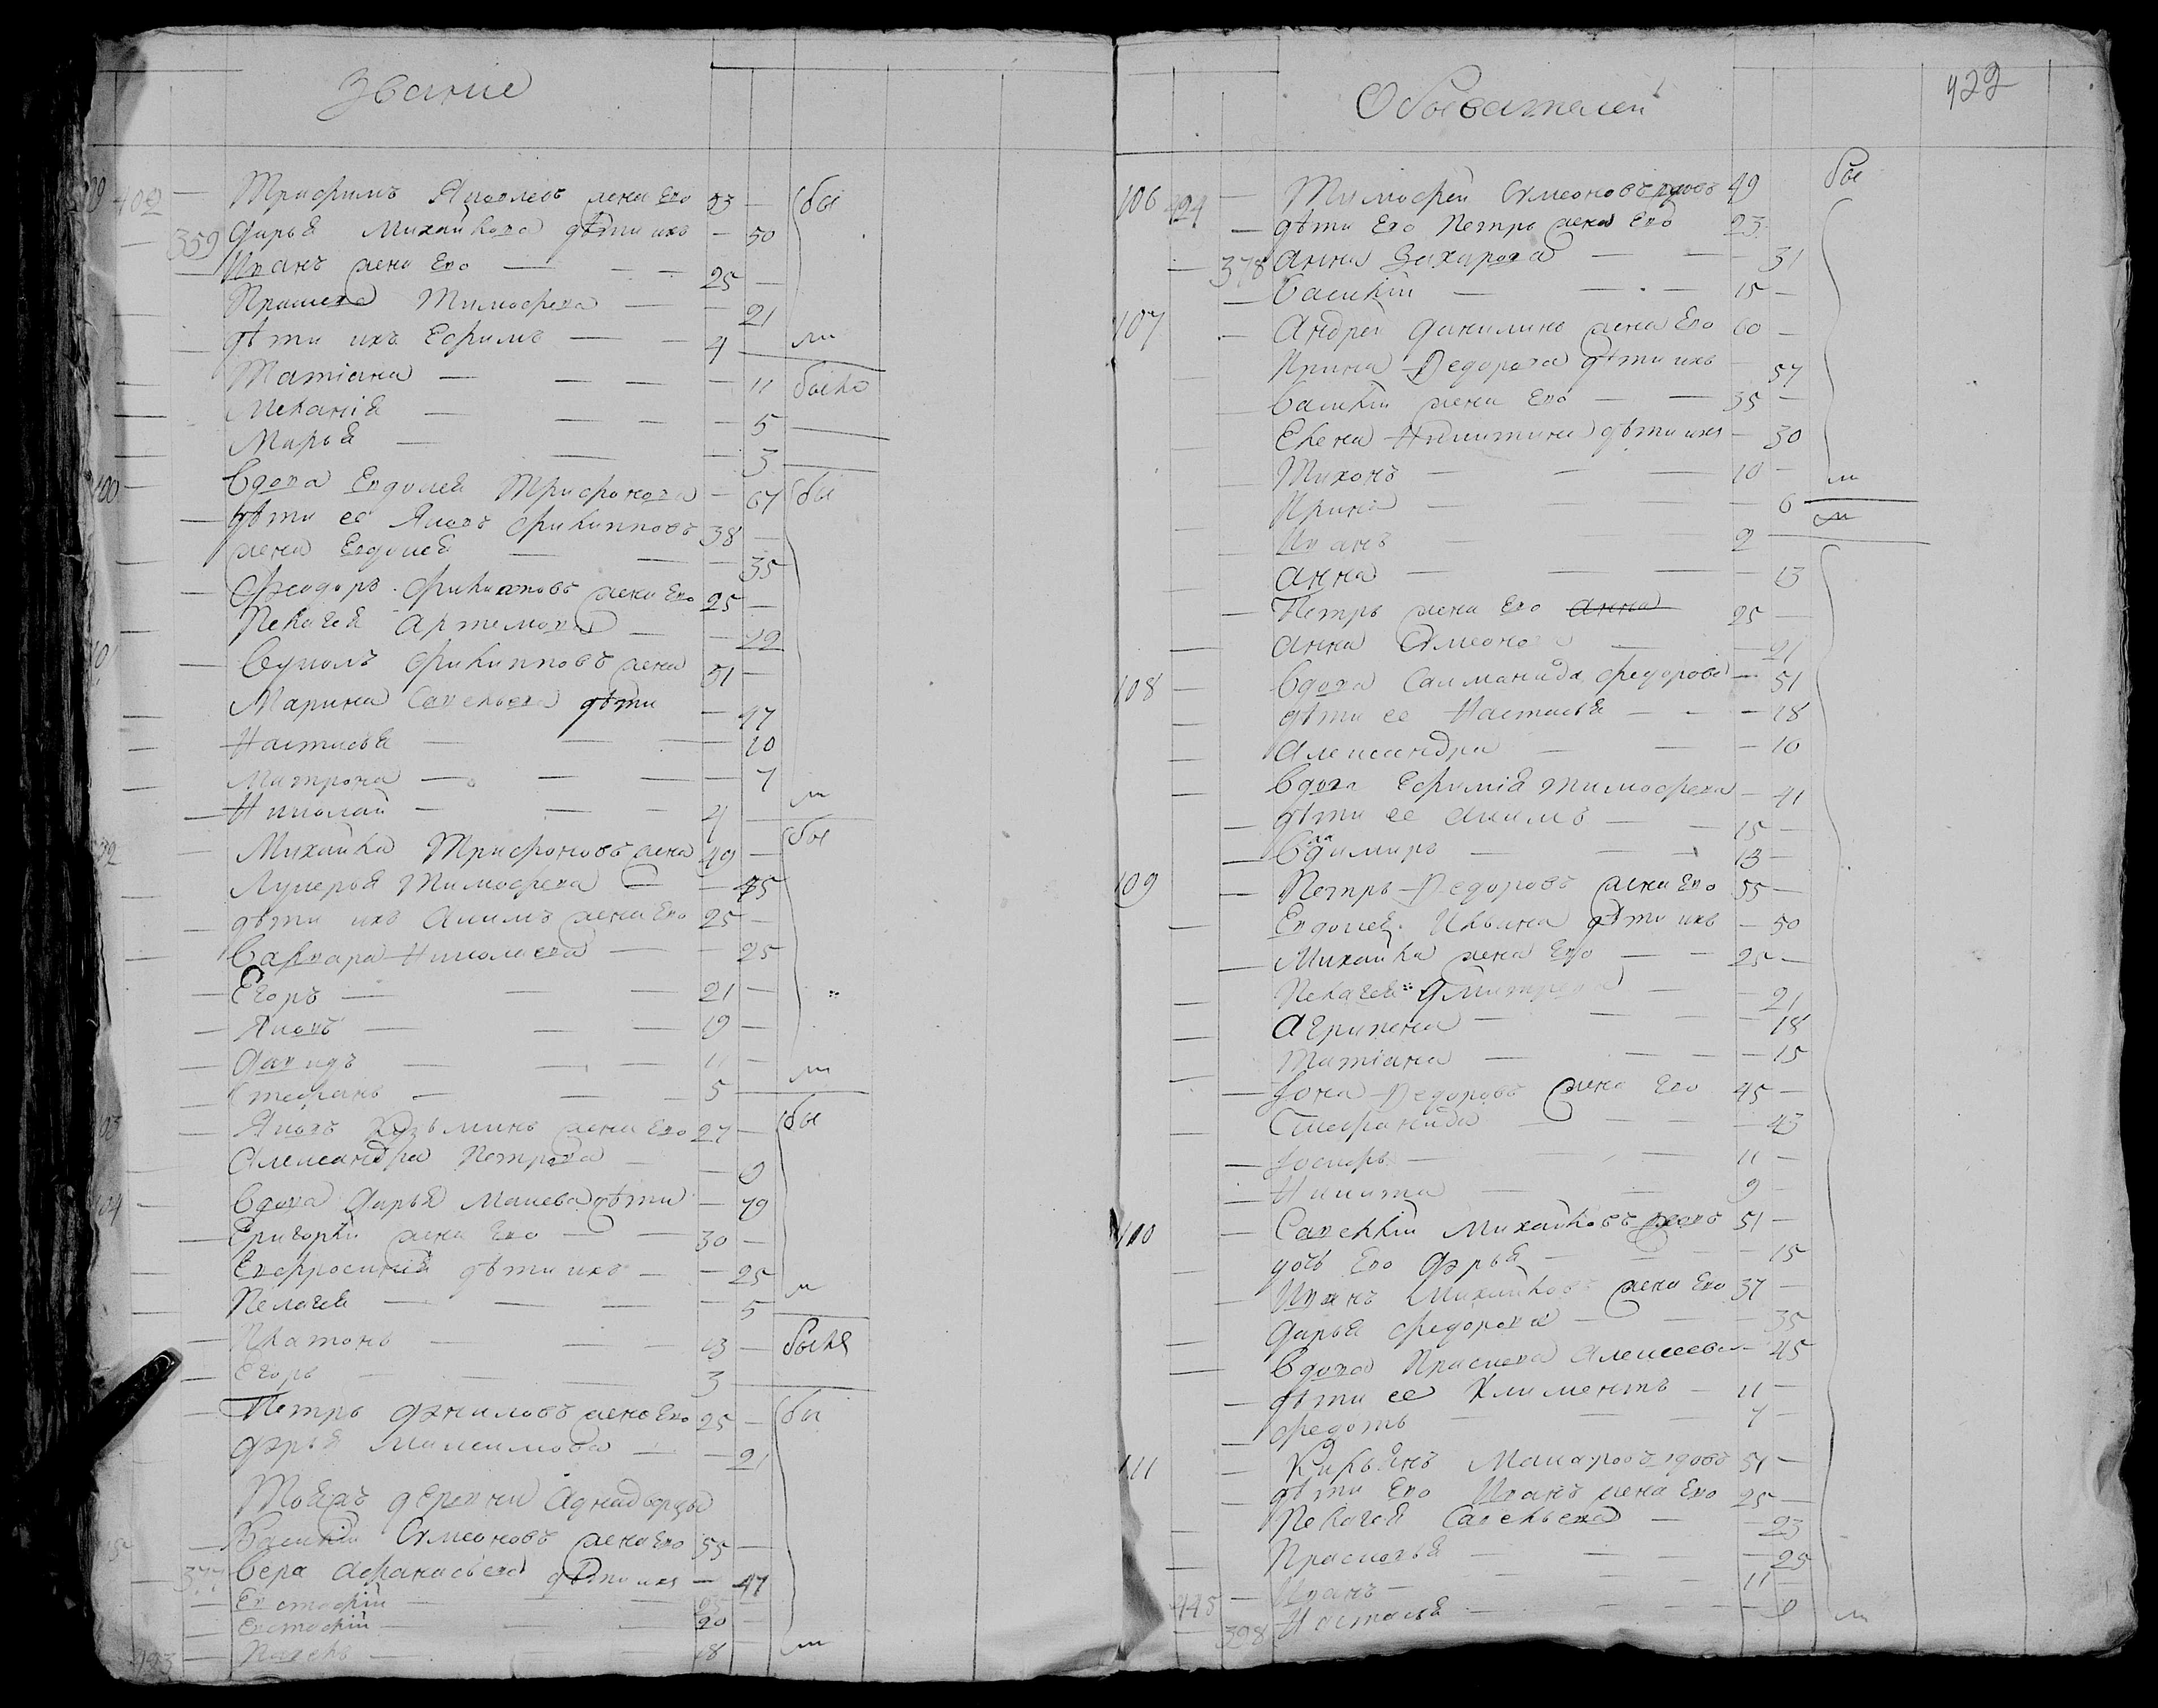 Званіе
402 Трифимъ Яковлевъ жена Его 53 бы
359 Дарья Михайлова дѣти ихъ 50
Иванъ жена Его 25
Тимофева 21
дѣти ихъ Ефимъ 4
Татіана 11
5
Марья 3
100 Вдова Евдокея Трифонова 67 бы
дѣти ее Яковъ Филипповъ 38
жена Евдокея 35
Феодоръ Филиповъ жена Его 25
Пелагея Артемова 22
Филипповъ жена 51
Марина Савельева дѣти 47
Настасья 10
Матрона 7
Николай 4
Михайла Трифоновъ жена 49 бы
Лукерья Тимофева 45
дѣти ихъ Акимъ жена Его 25
Варвара Николаева 25
Егоръ 21
Яковъ 19
Давидъ 11
Стефанъ 5
Яковъ Кузьминъ жена Его 27 бы
Александра Петрова
104 Вдова Дарья дѣти 79
Григорей жена Его 30
Евфросинія дѣти ихъ 25
Пелагея 5
Платонъ 13
Егоръ 3
Петръ жена Его 25 бы
Дарья Максимова 21
Тояжъ деревни Аднадворцы
Василій Симеоновъ жена Его 55
377 Вера Афанасьева дѣти ихъ 47
Евстафій
Евстафій 20
Павелъ 18
Обывателей
422
106 424 Тимофей Симеоновъ вдовъ 49 бы
дѣти Его Петръ жена Его 23
378 Анна Захарова 31
Василій 15
107 Андрей Данилинъ жена Его 60
Ирина Федорова дѣти ихъ 57
Василій жена Его 35
Елена Никитина дѣти ихъ 30
Тихонъ 10
Ирина 6
Иванъ 2
Анна 13
Петръ жена Его Анна 25
Анна Симеоно 21
108 Вдова Салманида Федорова 51
дѣти ее Настасья 18
Александра 16
Вдова Ефимія Тимофева 41
дѣти ее Акимъ 15
Владимиръ 13
109 Петръ Федоровъ жена Его 55
Евдокея Ильина дѣти ихъ 50
Михайла жена Его 25
Пелагея Дмитрева 21
Агрипена 18
Татіана 15
Iона Федоровъ жена Его 45
Стефанида 43
Iосифъ 11
Никита 9
110 Савелій Михайловъ вдовъ 51
дочь Его Дарья 15
Иванъ Михайловъ жена Его 37
Дарья Федорова 35
Вдова Алексеева 45
дѣти ее Климентъ 11
Федотъ 7
111 Макаровъ вдовъ 51
дѣти Его Иванъ жена Его 25
Пелагея Савельева 23
Прасковья 25
445 Иванъ 11
398 Настасья 9